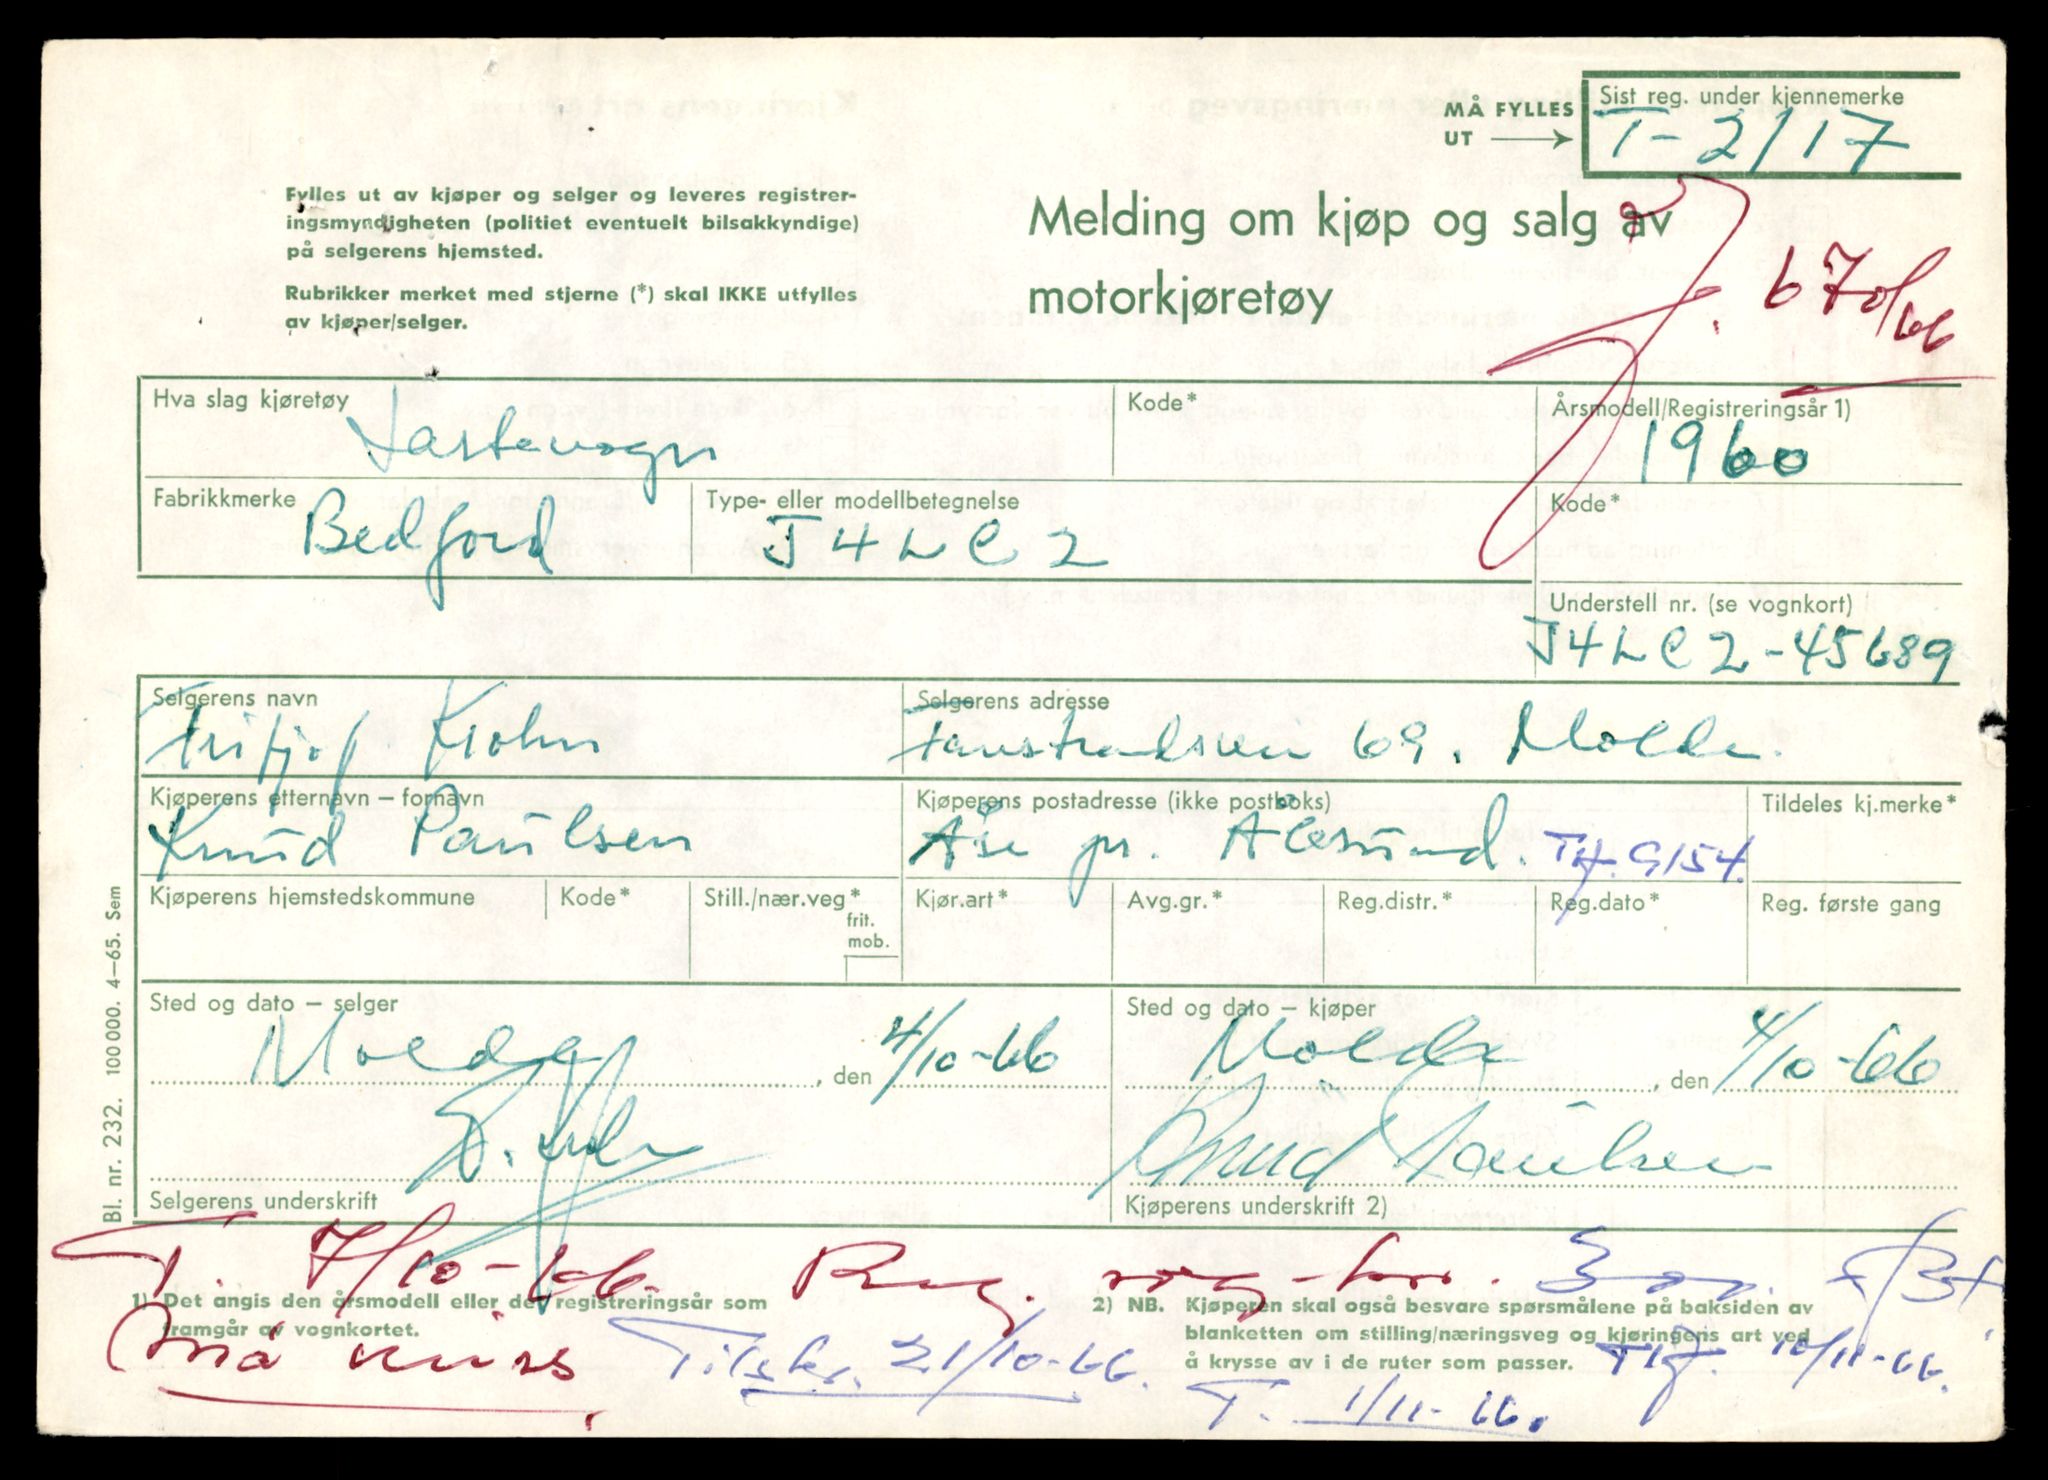 MÅ FYLLES UT
Sist reg. under kjennemerke
T-2117
Fylles ut av kjøper og selger og leveres registrer-
ingsmyndigheten (politiet eventuelt bilsakkyndige)
på selgerens hjemsted.
Rubrikker merket med stjerne (*) skal IKKE utfylles
av kjøper/selger.
Melding om kjøp og salg av
motorkjøretøy
J. 670/66
Hva slag kjøretøy
Lastevogn
Kode*
Årsmodell/Registreringsår 1)
1960
Fabrikkmerke
Bedford
Type- eller modellbetegnelse
J4LC2
Kode*
Understell nr. (se vognkort)
J4LC2-45689
Selgerens navn
Fritjof Krohn
Selgerens adresse
69. Molde.
Kjøperens etternavn – fornavn
Knud Paulsen
Kjøperens postadresse (ikke postboks)
Åse pr. Ålesund. Tlf. 9154.
Tildeles kj.merke*
Kjøperens hjemstedskommune
Kode*
Still./nær.veg*
frit.
mob.
Kjør.art*
Avg.gr.*
Reg.distr.*
Reg.dato*
Reg. første gang
Sted og dato – selger
Molde, den 4/10-66
Sted og dato – kjøper
Molde, den 4/10-66
Knud Paulsen
Selgerens underskrift
Kjøperens underskrift 2)
T 7/10-66. Reg. og
1) Det angis den årsmodell eller det registreringsår som
framgår av vognkortet.
2) NB. Kjøperen skal også besvare spørsmålene på baksiden av
blanketten om stilling/næringsveg og kjøringens art ved
å krysse av i de ruter som passer.
Tilskr. 21/10-66.
Tlf. 10/11-66.
T. 1/11-66.
Bl. nr. 232. 100000. 4–65. Sem